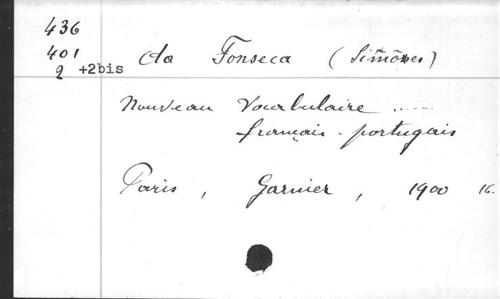 436
401
2 +2bis
da Fonseca (Simões)
Nouveau Vocabulaire .....
français - portugais
Paris, Garnier, 1900 16.